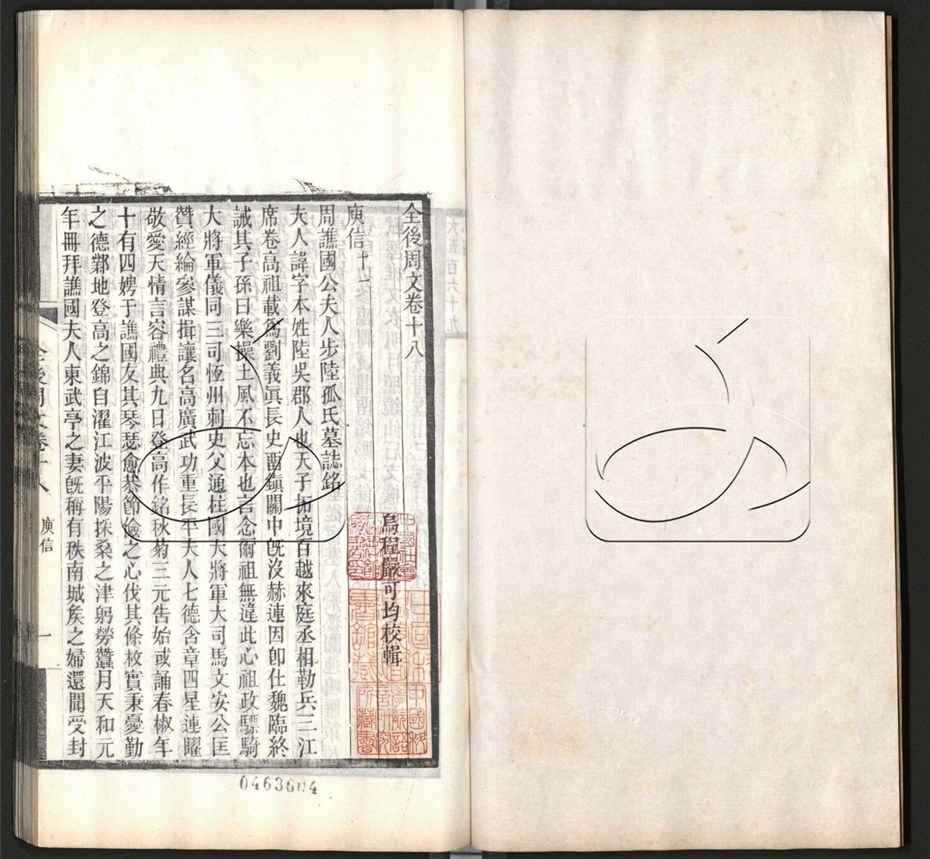 全後周文卷十八
烏程嚴可均校輯
庾信十一
周譙國公夫人步陸孤氏墓誌銘
夫人諱字本姓陸吳郡人也天子拓境百越來庭丞相勒兵三江
席卷高祖載爲劉義眞長史留鎭關中旣沒赫連因卽仕魏臨終
誡其子孫曰樂操土風不忘本也言念爾祖無違此心祖政驃騎
大將軍儀同三司恆州刺史父通柱國大將軍大司馬文安公匡
贊經綸參謀揖讓名高廣武功重長平夫人七德含章四星連曜
敬愛天情言容禮典九日登高作銘秋菊三元告始或誦春椒年
十有四娉于譙國友其琴瑟愈恭節儉之心伐其條枚實秉憂勤
之德鄴地登高之錦自濯江波平陽採桑之津躬勞蠶月天和元
年冊拜譙國夫人東武亭之妻旣稱有秩南城矦之婦還聞受封
全後周文卷十八
庾信
一
0463604